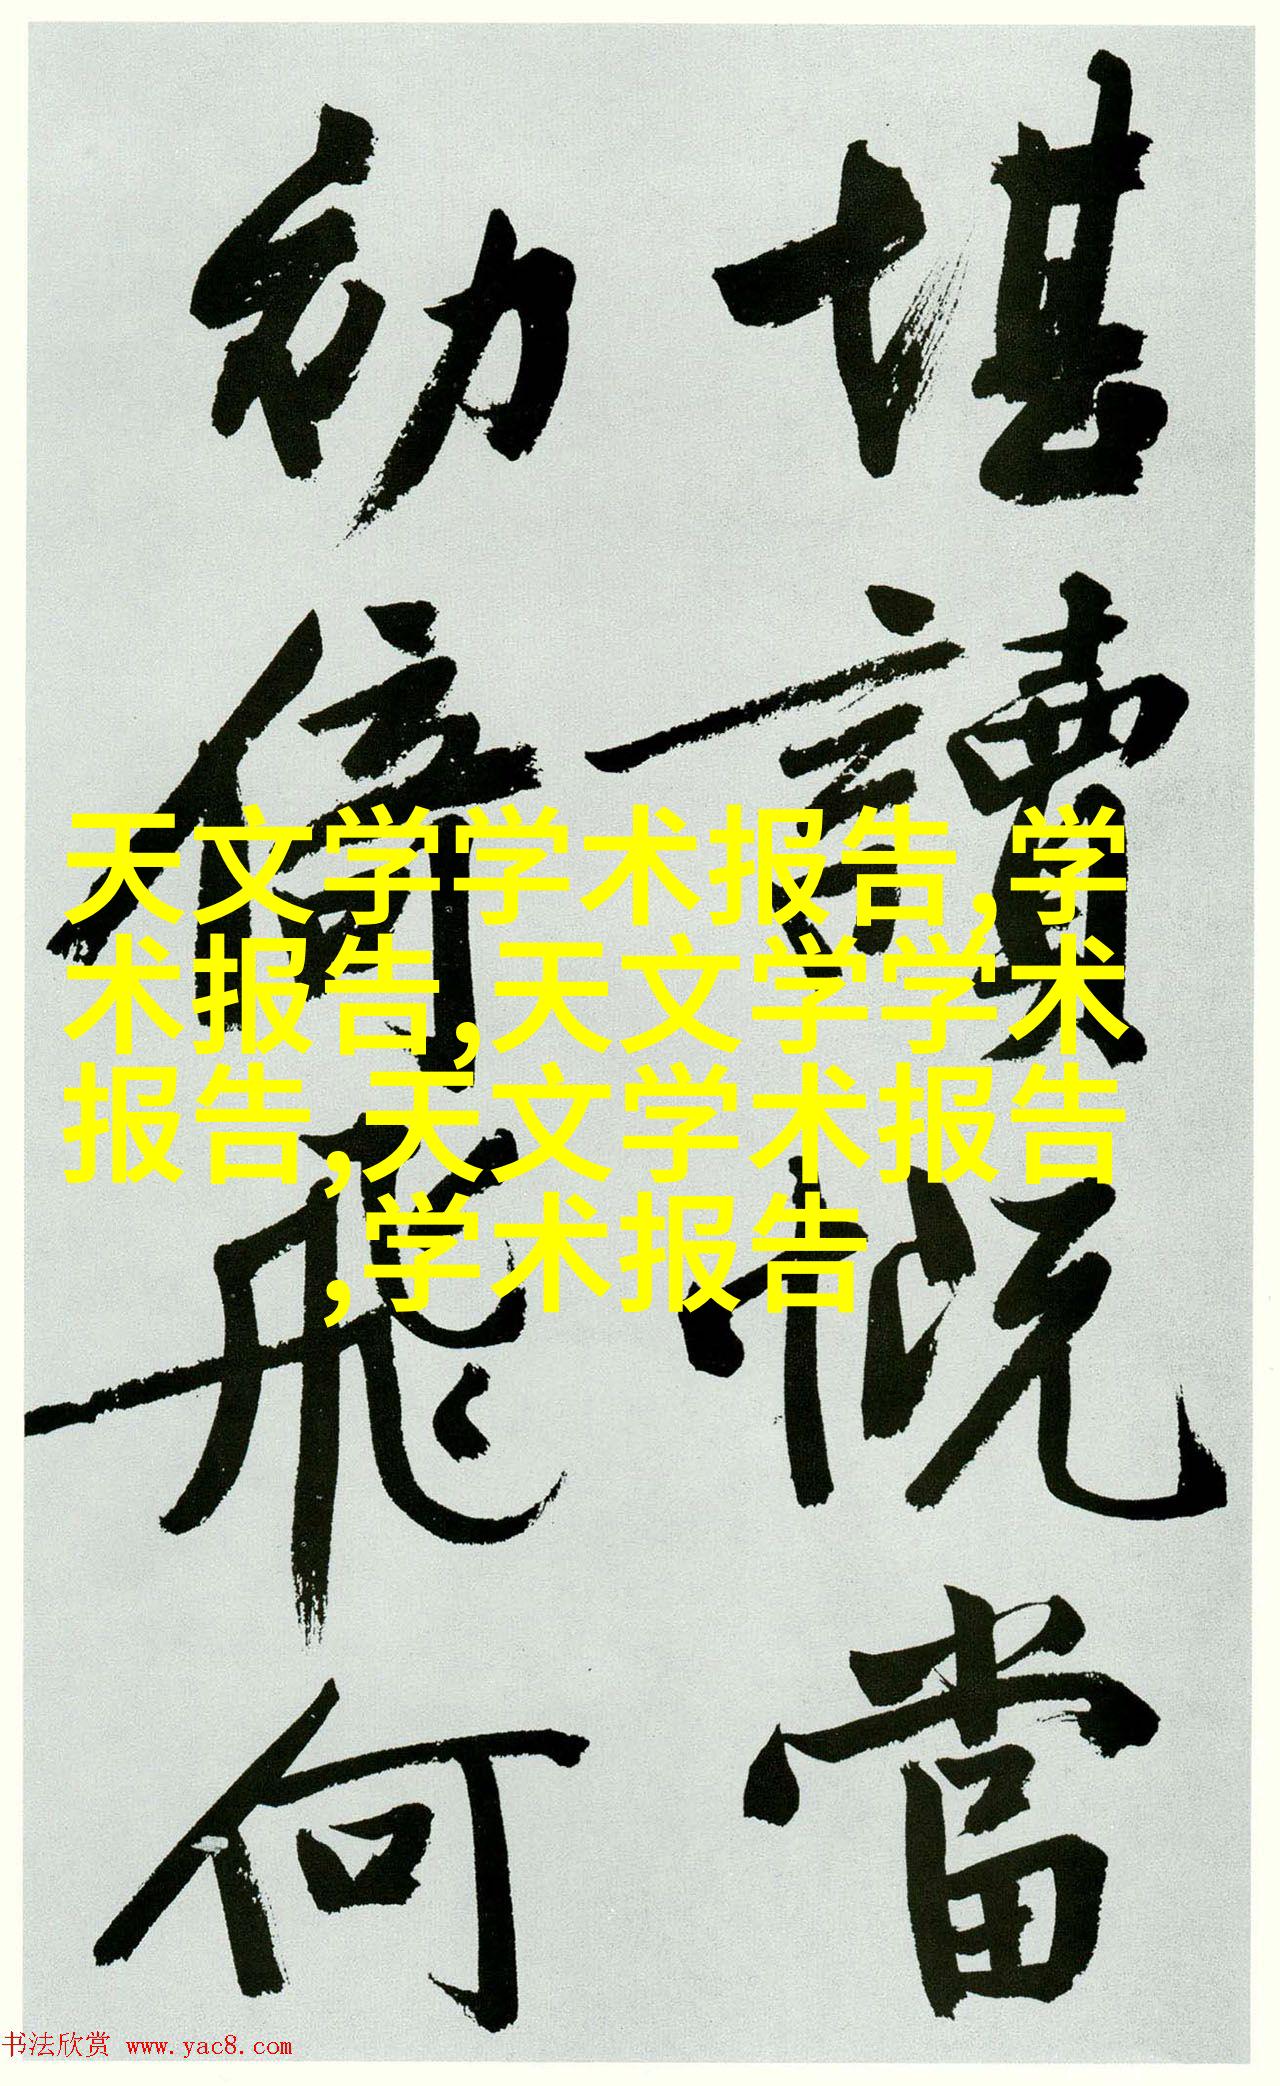 堪讀慨當
幼倚飛何
天文学学术报告,学
术报告,天文学学术
报告,天文学术报告
,学术报告
书法欣赏 www.yac8.com